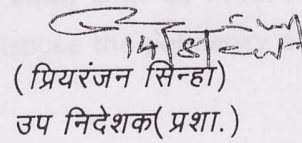 14/8
(प्रियरंजन सिन्हा)
उप निदेशक(प्रशा.)